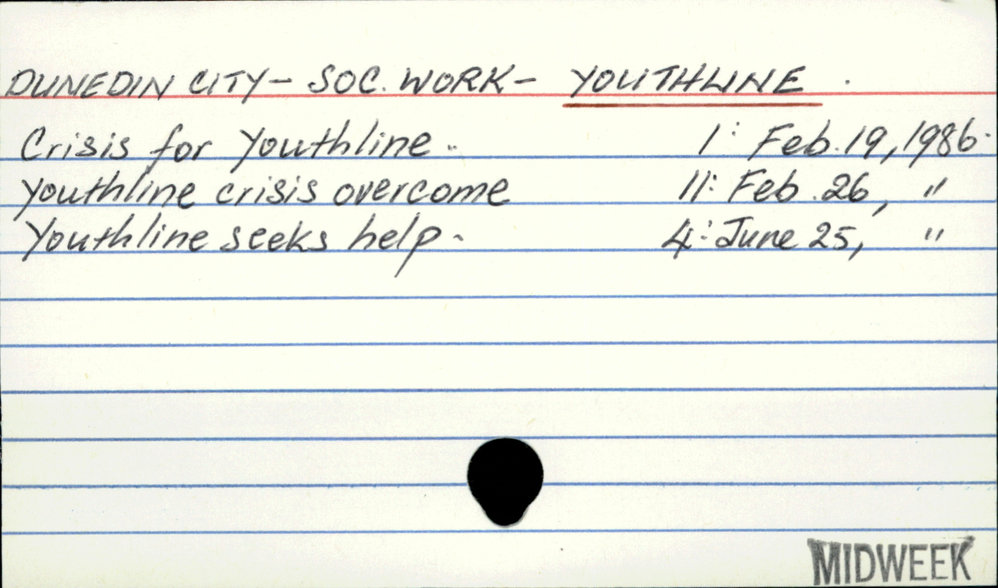 DUNEDIN CITY - SOC. WORK - YOUTHLINE.
Crisis for Youthline. 1: Feb. 19, 1986.
Youthline crisis overcome 11: Feb. 26, "
Youthline seeks help. 4: June 25, "
MIDWEEK